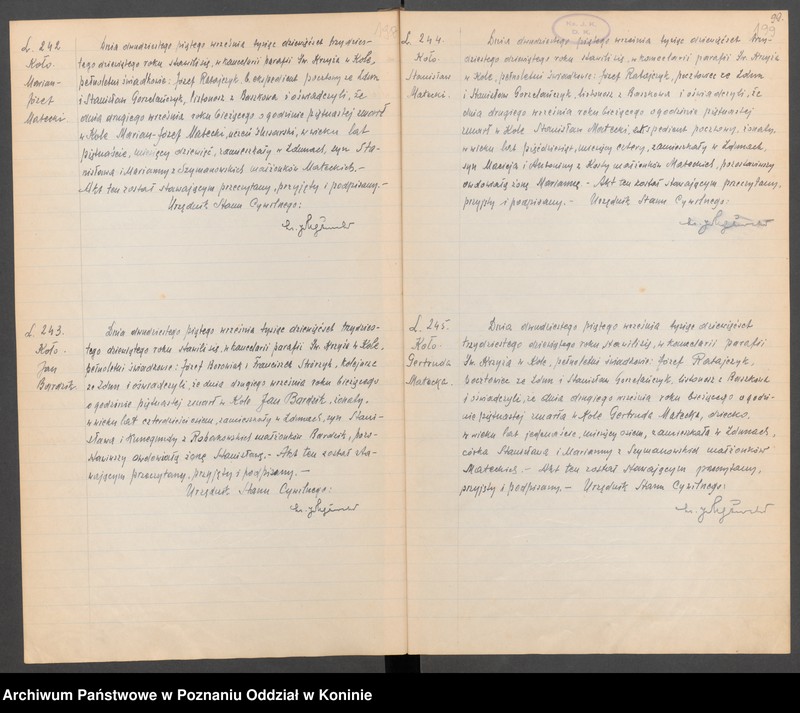 L. 242
Koło
Marian-
Józef
Matecki
Dnia dwudziestego piątego września tysiąc dziewięćset trzydzies-
tego dziewiątego roku stawili się w kancelarii parafii Św. Krzyża w Kole,
pełnoletni świadkowie: Józef Ratajczyk, ekspedient pocztowy ze Zdun
i Stanisław Gorzelańczyk, listonosz z Baszkowa i oświadczyli, że
dnia drugiego września roku bieżącego o godzinie piętnastej zmarł
w Kole Marian-Józef Matecki, uczeń w wieku lat
piętnaście, miesięcy dziewięć, zamieszkały w Zdunach, syn Sta-
nisława i Marianny z Szymanowskich małżonków Mateckich. -
Akt ten został stawającym przeczytany, przyjęty i podpisany. -
Urzędnik Stanu Cywilnego:
L. 243.
Koło -
Jan
Bardzik
Dnia dwudziestego piątego września tysiąc dziewięćset trzydzies-
tego dziewiątego roku stawili się w kancelarii parafii Św. Krzyża w Kole,
pełnoletni świadkowie: Józef Borowiak i Franciszek kolejarze
ze Zdun i oświadczyli, że dnia drugiego września roku bieżącego
o godzinie piętnastej zmarł w Kole Jan Bardzik, żonaty,
w wieku lat czterdzieści osiem, zamieszkały w Zdunach, syn Stani-
sława i Kunegundy z małżonków Bardzik, pozo-
stawiwszy owdowiałą żonę Stanisławę. - Akt ten został sta-
wającym przeczytany, przyjęty i podpisany. -
Urzędnik Stanu Cywilnego:
98.
199
L. 244.
Koło
Stanisław
Matecki.
Dnia dwudziestego piątego września tysiąc dziewięćset trzy-
dziestego dziewiątego roku stawili się w kancelarii parafii Św. Krzyża
w Kole, pełnoletni świadkowie: Józef Ratajczyk, pocztowiec ze Zdun
i Stanisław Gorzelańczyk, listonosz z Baszkowa i oświadczyli, że
dnia drugiego września roku bieżącego o godzinie piętnastej
zmarł w Kole Stanisław Matecki, ekspedient pocztowy, żonaty,
w wieku lat pięćdziesiąt, miesięcy cztery, zamieszkały w Zdunach,
syn Macieja i Antoniny z małżonków Mateckich, pozostawiwszy
owdowiałą żonę Mariannę. - Akt ten został stawającym przeczytany,
przyjęty i podpisany. - Urzędnik Stanu Cywilnego:
L. 245.
Koło.
Gertruda
Matecka.
Dnia dwudziestego piątego września tysiąc dziewięćset
trzydziestego dziewiątego roku stawili się w kancelarii parafii
Św. Krzyża w Kole, pełnoletni świadkowie: Józef Ratajczyk,
pocztowiec ze Zdun i Stanisław Gorzelańczyk, listonosz z Baszkowa
i oświadczyli, że dnia drugiego września roku bieżącego o godzi-
nie piętnastej zmarła w Kole Gertruda Matecka, dziecko,
w wieku lat jedenaście, miesięcy osiem, zamieszkała w Zdunach,
córka Stanisława i Marianny z Szymanowskich małżonków
Mateckich. - Akt ten został stawającym przeczytany,
przyjęty i podpisany. - Urzędnik Stanu Cywilnego:
Archiwum Państwowe w Poznaniu Oddział w Koninie